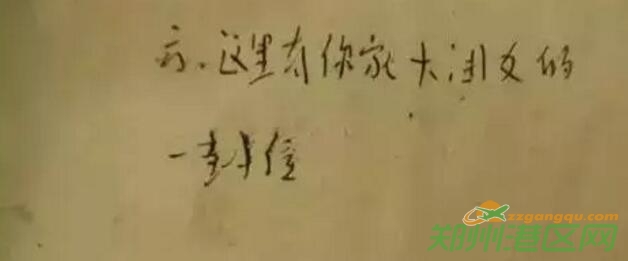 这里有你家大闺女的
一封信
zzgangqu.com
郑州港区网